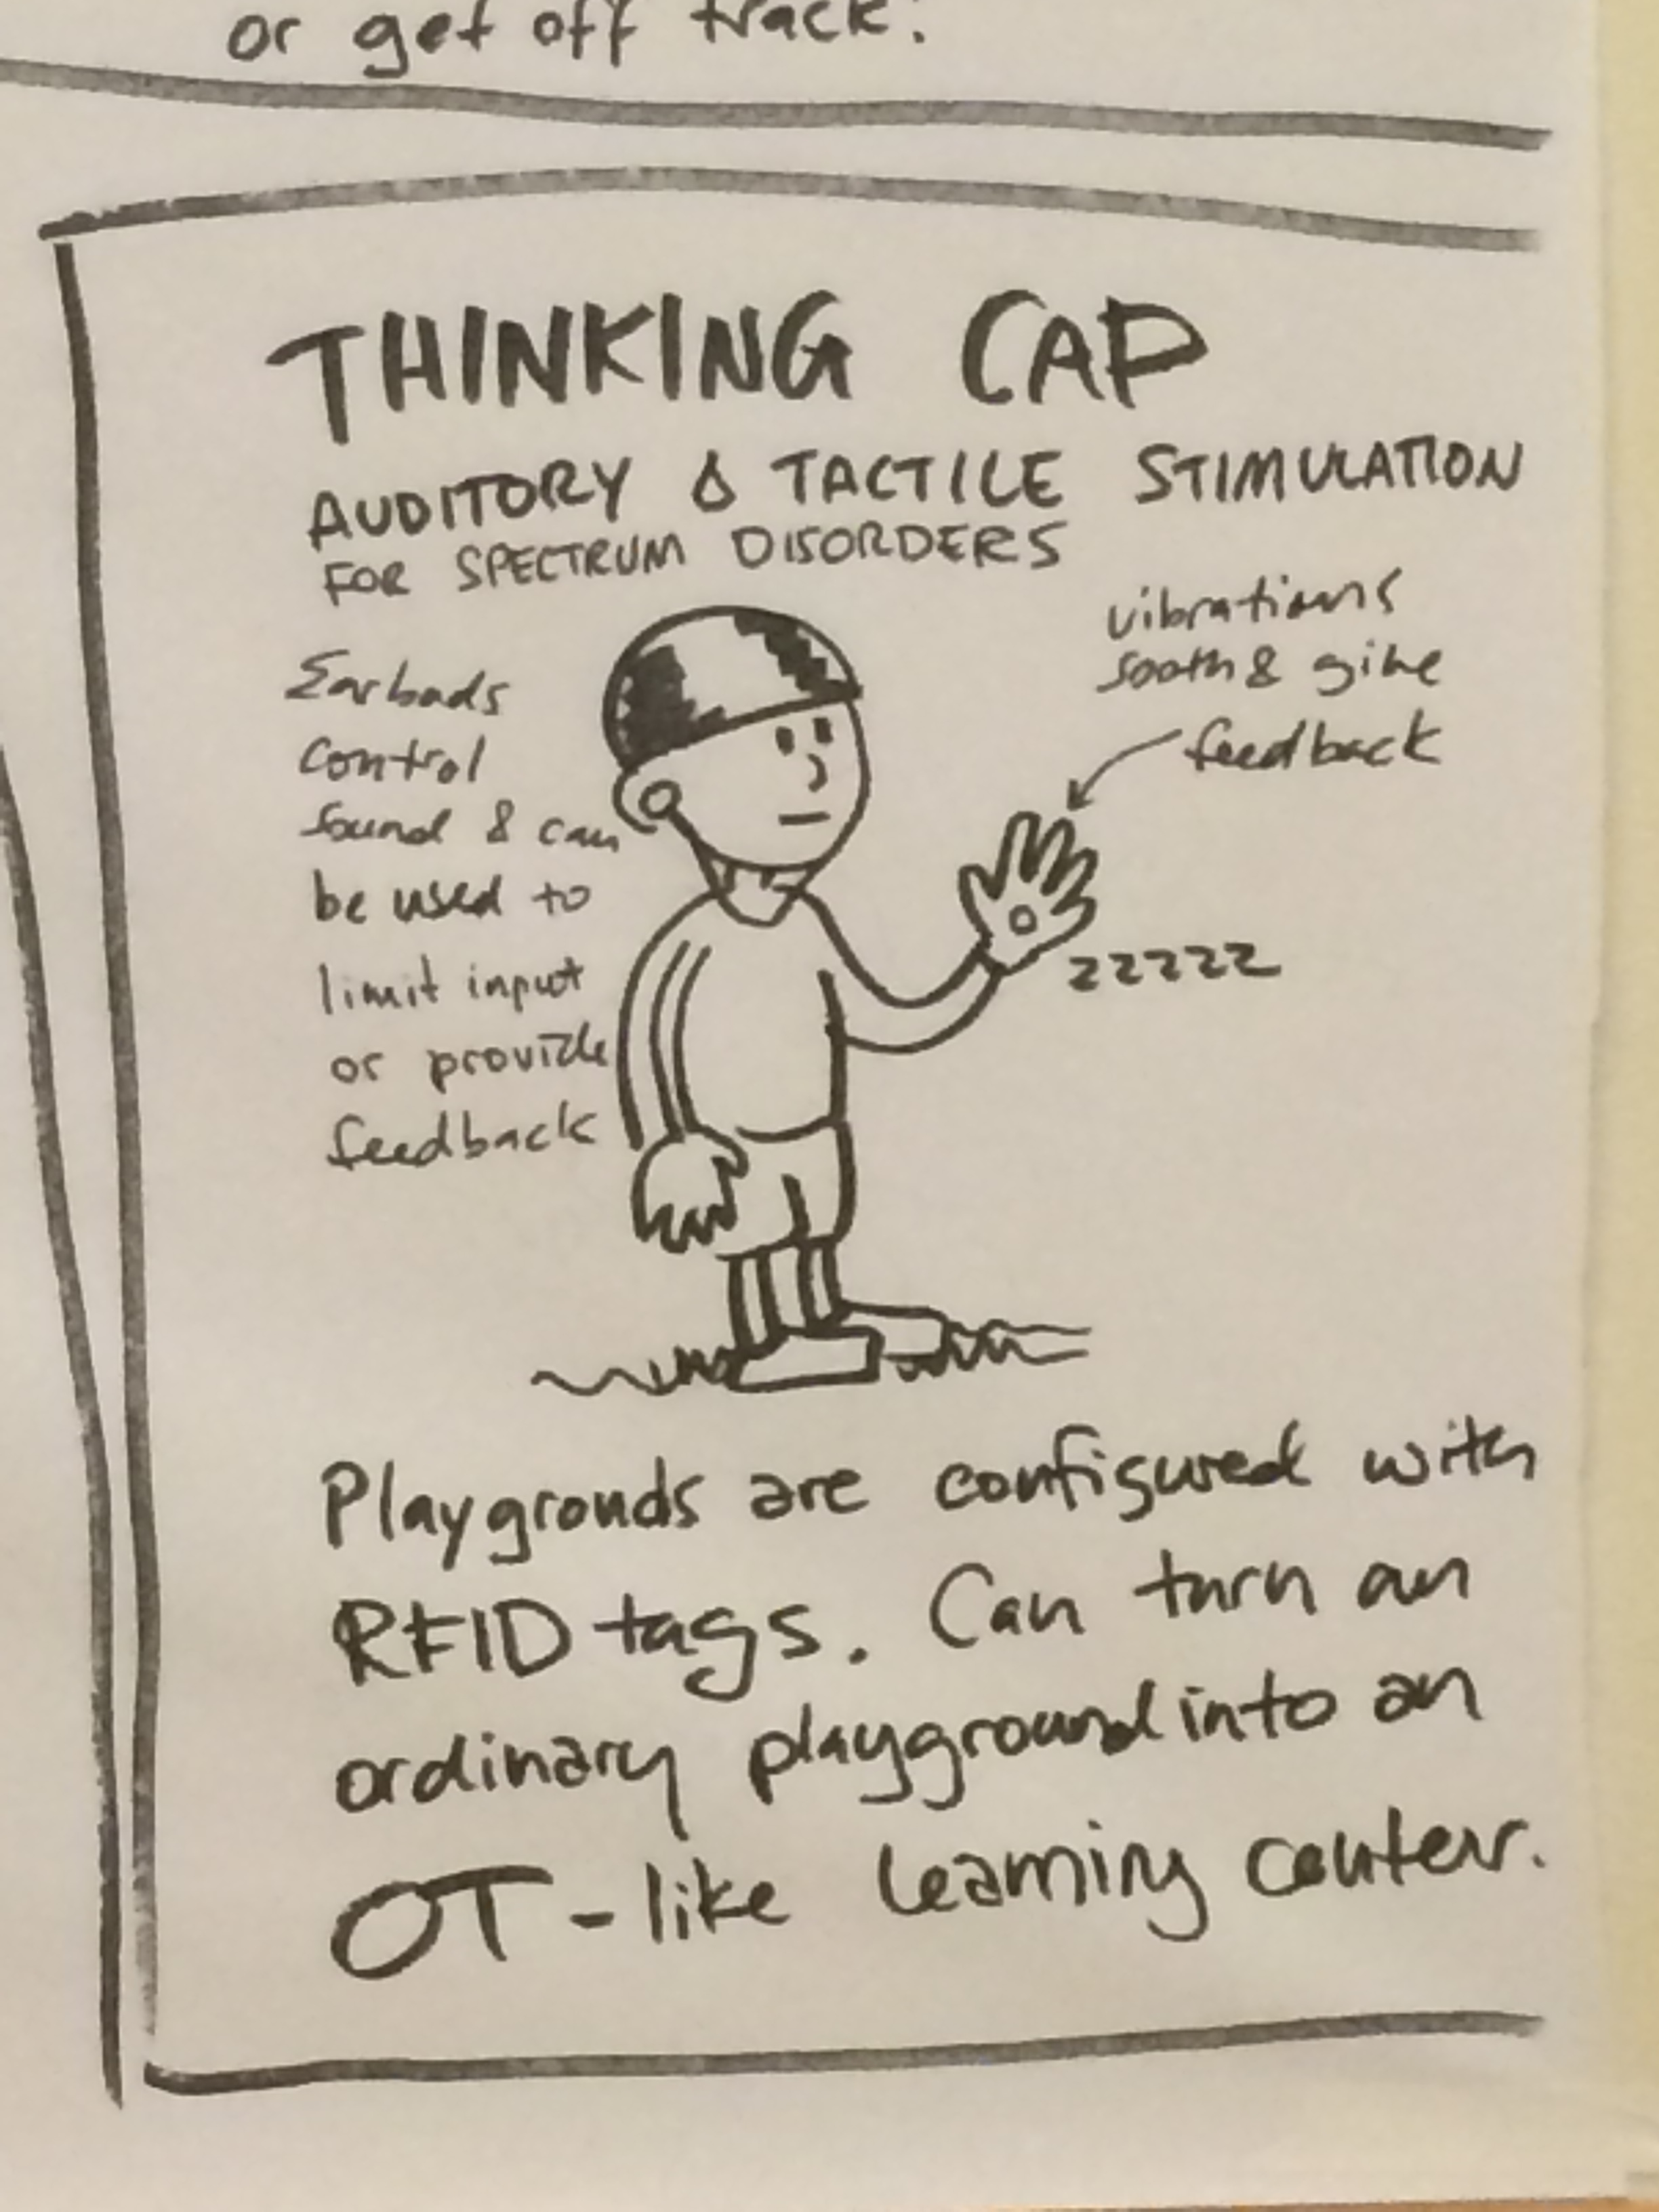 or get off track.
THINKING CAP
AUDITORY & TACTILE STIMULATION
FOR SPECTRUM DISORDERS
Earbuds
control
sound & can
be used to
limit input
or provide
feedback
vibrations
sooth & give
feedback
zzzzz
Playgrouds are configured with
RFID tags. Can turn an
ordinary playground into an
OT-like learning center.